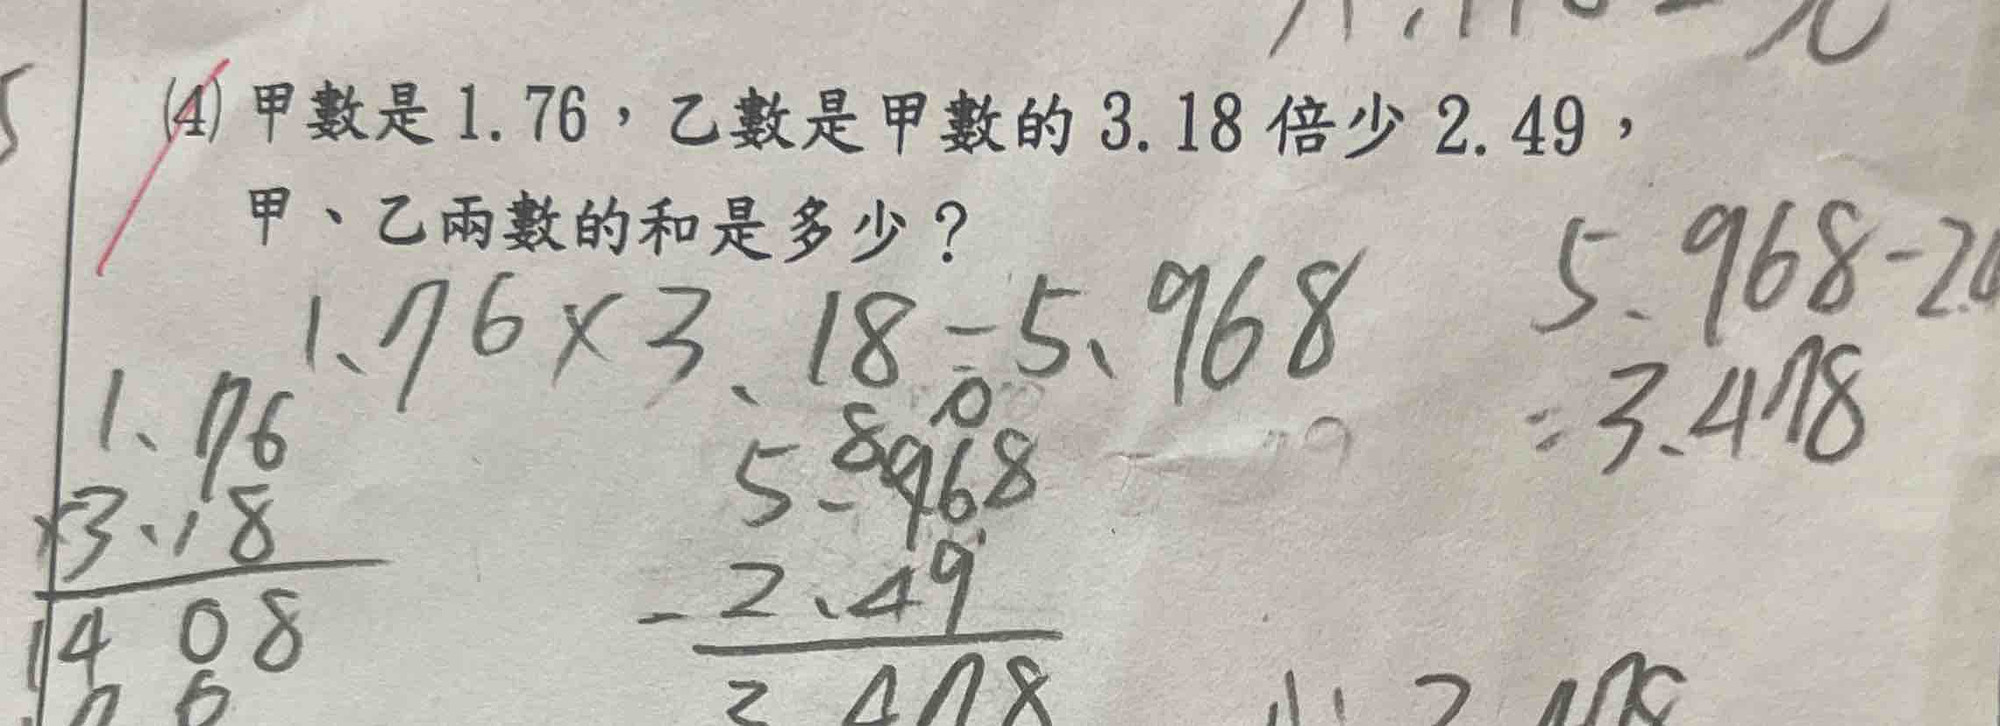 (4) 甲數是 1.76，乙數是甲數的 3.18 倍少 2.49，
甲、乙兩數的和是多少？
1.76×3.18=5.968
5.968-2.
=3.478
1.76
×3.18
1408
5.968
8 10
-2.49
3.478